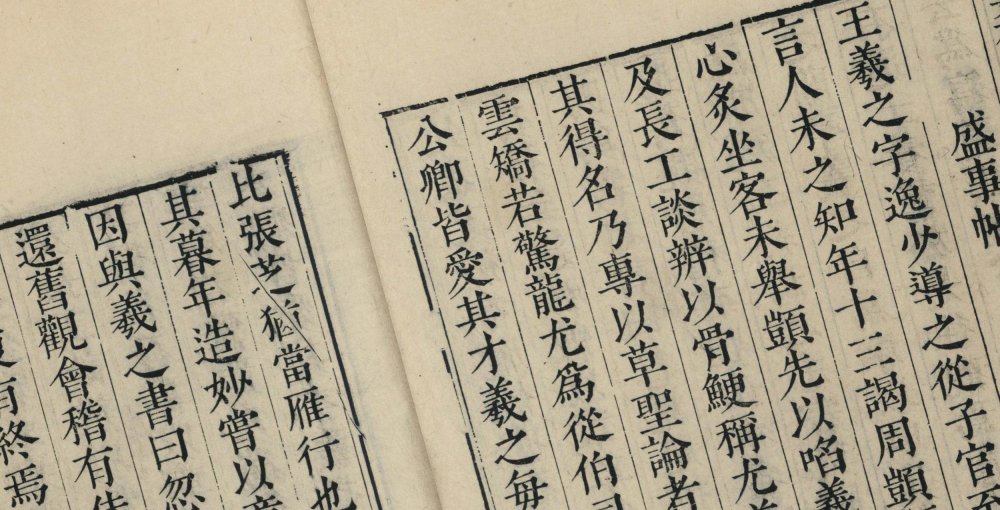 盛事帖
王羲之字逸少導之從子官至
言人未之知年十三謁周顗
心炙坐客未舉顗先以啗羲
及長工談辨以骨鯁稱尤
其得名乃專以草聖論者
雲矯若驚龍尤為從伯
公卿皆愛其才羲之每
比張芝猶當雁行也
其暮年造妙嘗以章
因與羲之書曰忽
還舊觀會稽有佳
有終焉